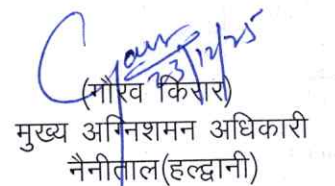 23/12/25
(गौरव किरार)
मुख्य अग्निशमन अधिकारी
नैनीताल(हल्द्वानी)